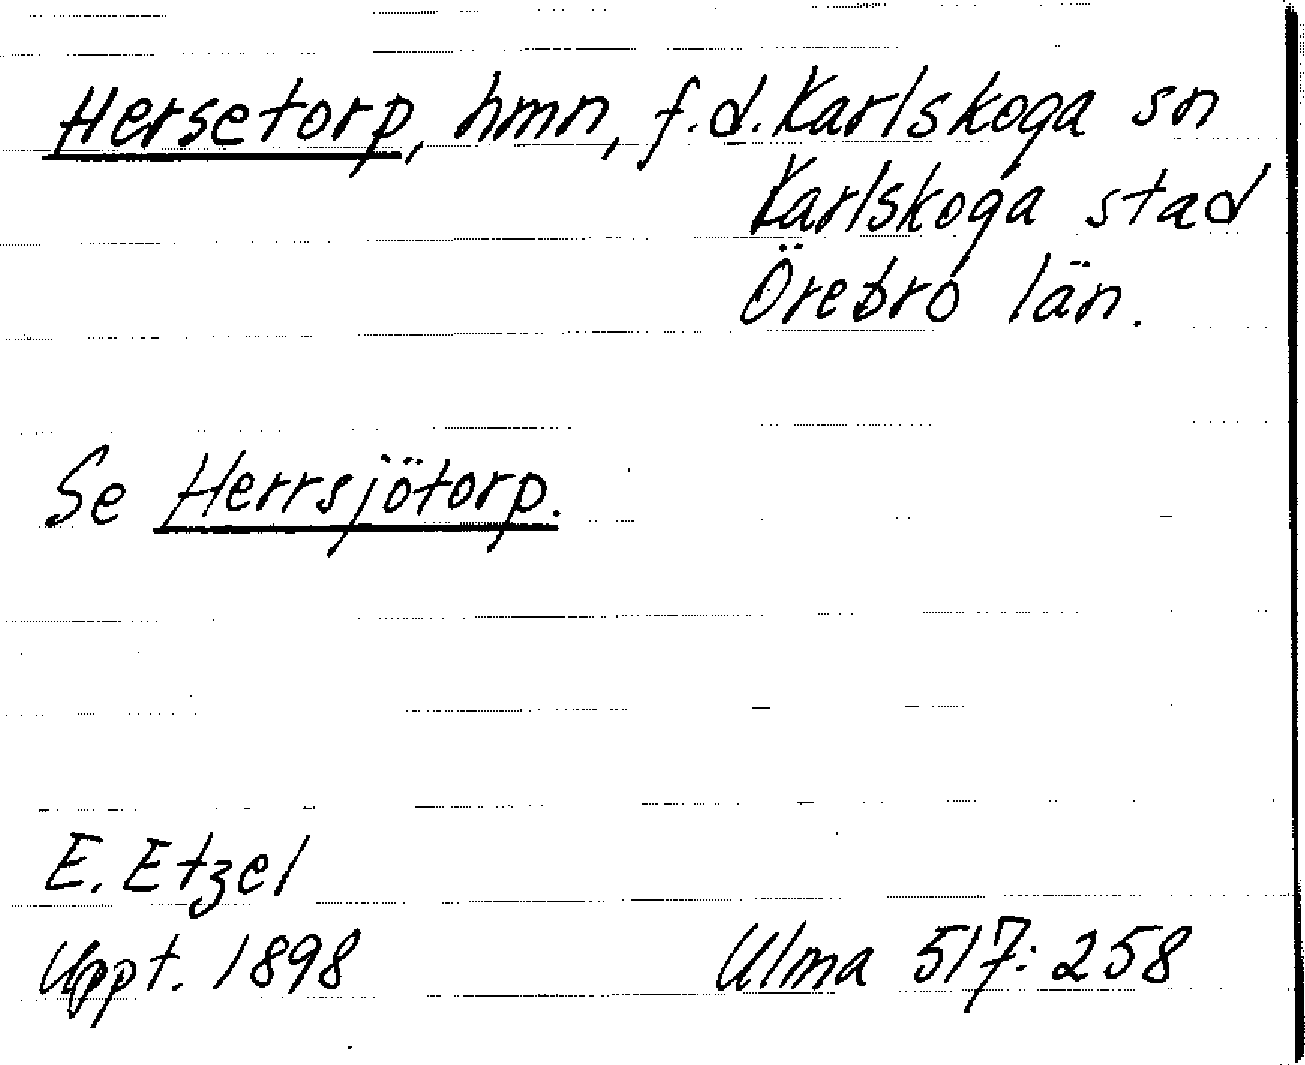 Hersetorp, hmn, f.d. Karlskoga sn
Karlskoga stad
Örebro län.
Se Herrsjötorp.
E. Etzel
Uppt. 1898
Ulma 517:258